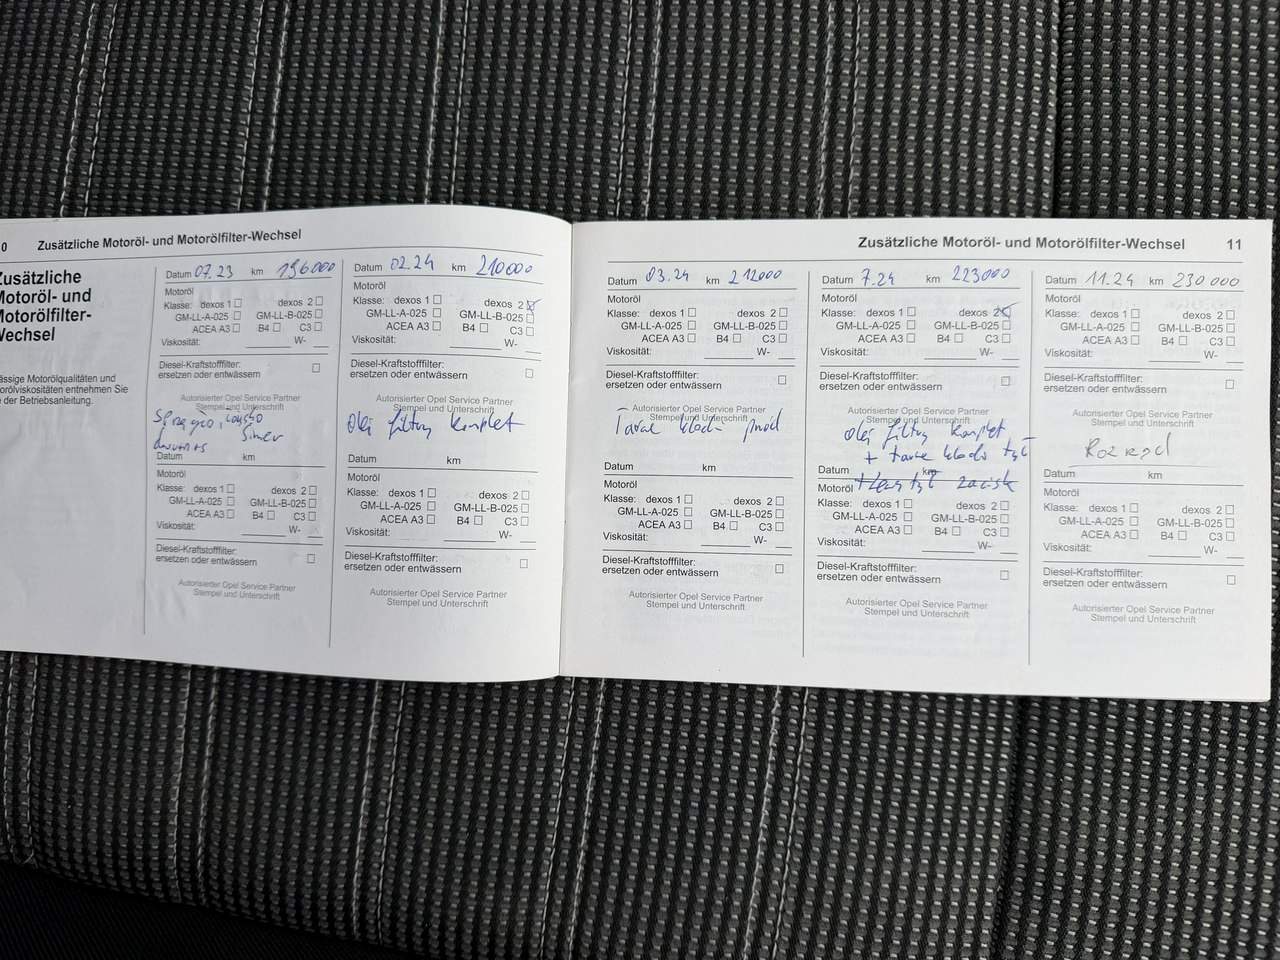 0 Zusätzliche Motoröl- und Motorölfilter-Wechsel
Zusätzliche
Motoröl- und
Motorölfilter-
Wechsel
ässige Motorölqualitäten und
orölviskositäten entnehmen Sie
der Betriebsanleitung.
Datum 07.23 km 196000
Motoröl
Klasse: dexos 1 dexos 2
GM-LL-A-025 GM-LL-B-025
ACEA A3 B4 C3
Viskosität: W-
Diesel-Kraftstofffilter:
ersetzen oder entwässern
Autorisierter Opel Service Partner
Stempel und Unterschrift
Sprzęgło, łożysko
Simer
Datum km
Motoröl
Klasse: dexos 1 dexos 2
GM-LL-A-025 GM-LL-B-025
ACEA A3 B4 C3
Viskosität: W-
Diesel-Kraftstofffilter:
ersetzen oder entwässern
Autorisierter Opel Service Partner
Stempel und Unterschrift
Datum 02.24 km 210000
Motoröl
Klasse: dexos 1 dexos 2
GM-LL-A-025 GM-LL-B-025
ACEA A3 B4 C3
Viskosität: W-
Diesel-Kraftstofffilter:
ersetzen oder entwässern
Autorisierter Opel Service Partner
Stempel und Unterschrift
Olej filtry komplet
Datum km
Motoröl
Klasse: dexos 1 dexos 2
GM-LL-A-025 GM-LL-B-025
ACEA A3 B4 C3
Viskosität: W-
Diesel-Kraftstofffilter:
ersetzen oder entwässern
Autorisierter Opel Service Partner
Stempel und Unterschrift
Zusätzliche Motoröl- und Motorölfilter-Wechsel 11
Datum 03.24 km 212000
Motoröl
Klasse: dexos 1 dexos 2
GM-LL-A-025 GM-LL-B-025
ACEA A3 B4 C3
Viskosität: W-
Diesel-Kraftstofffilter:
ersetzen oder entwässern
Autorisierter Opel Service Partner
Stempel und Unterschrift
Tarcze klocki przód
Datum km
Motoröl
Klasse: dexos 1 dexos 2
GM-LL-A-025 GM-LL-B-025
ACEA A3 B4 C3
Viskosität: W-
Diesel-Kraftstofffilter:
ersetzen oder entwässern
Autorisierter Opel Service Partner
Stempel und Unterschrift
Datum 7.24 km 223000
Motoröl
Klasse: dexos 1 dexos 2
GM-LL-A-025 GM-LL-B-025
ACEA A3 B4 C3
Viskosität: W-
Diesel-Kraftstofffilter:
ersetzen oder entwässern
Autorisierter Opel Service Partner
Stempel und Unterschrift
Olej filtry komplet
+ tarcze klocki tył
Datum km
+ Lewy tył zacisk
Motoröl
Klasse: dexos 1 dexos 2
GM-LL-A-025 GM-LL-B-025
ACEA A3 B4 C3
Viskosität: W-
Diesel-Kraftstofffilter:
ersetzen oder entwässern
Autorisierter Opel Service Partner
Stempel und Unterschrift
Datum 11.24 km 230 000
Motoröl
Klasse: dexos 1 dexos 2
GM-LL-A-025 GM-LL-B-025
ACEA A3 B4 C3
Viskosität: W-
Diesel-Kraftstofffilter:
ersetzen oder entwässern
Autorisierter Opel Service Partner
Stempel und Unterschrift
Rozrząd
Datum km
Motoröl
Klasse: dexos 1 dexos 2
GM-LL-A-025 GM-LL-B-025
ACEA A3 B4 C3
Viskosität: W-
Diesel-Kraftstofffilter:
ersetzen oder entwässern
Autorisierter Opel Service Partner
Stempel und Unterschrift